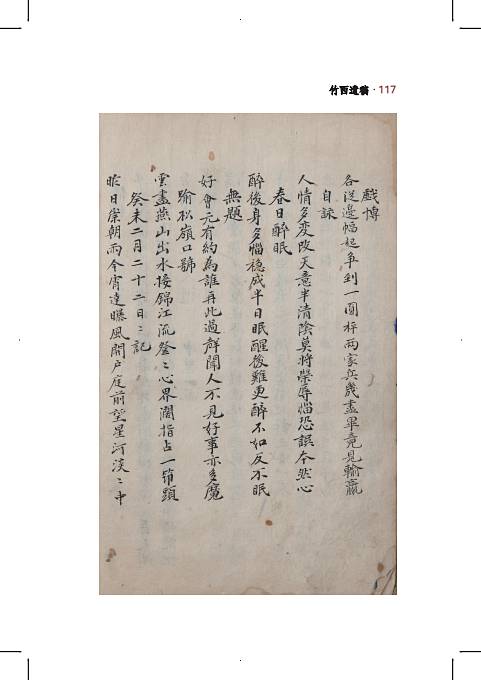 竹西遺稿 · 117
戱博
各從邊幅起爭到一圓枰兩家兵幾盡畢竟見輸贏
自詠
人情多変改天意半清陰莫將榮辱惱恐誤本然心
春日醉眠
醉後身多惱穏成半日眠醒後難更醉不如反不眠
無題
好會元有約為誰再此過群聞人不見好事亦多魔
踰松嶺口號
雲盡燕山出水接錦江流登〻心界闊指占一笻頭
癸未二月二十二日〻記
昨日崇朝雨今宵達曙風開戶庭前望星河淡〻中